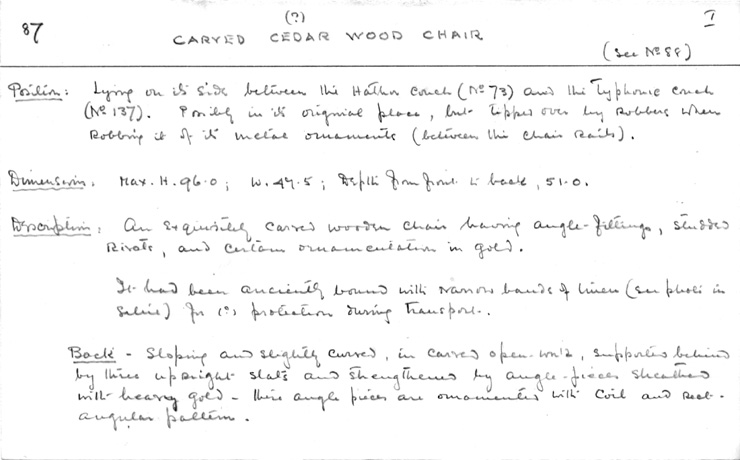 87 (?) I
CARVED CEDAR WOOD CHAIR
(See No 88)
Position: Lying on its side between the Hathor couch (No 73) and the Typhonic couch
(No 137). Possibly in its original place, but tipped over by Robbers when
Robbing it of its metal ornaments (between the chair rails).
Dimensions. Max. H. 96.0; W. 47.5; Depth from front to back, 51.0.
Description: An exquisitely carved wooden chair having angle-fittings, studded
Rivets, and certain ornamentation in gold.
It had been anciently bound with narrow bands of linen (see photo in
) for (?) protection during Transport.
Back - Sloping and slightly curved, in carved open-work, supported behind
by three upright slats and strengthened by angle-pieces sheathed
with heavy gold - these angle pieces are ornamented with coil and rect-
angular pattern.